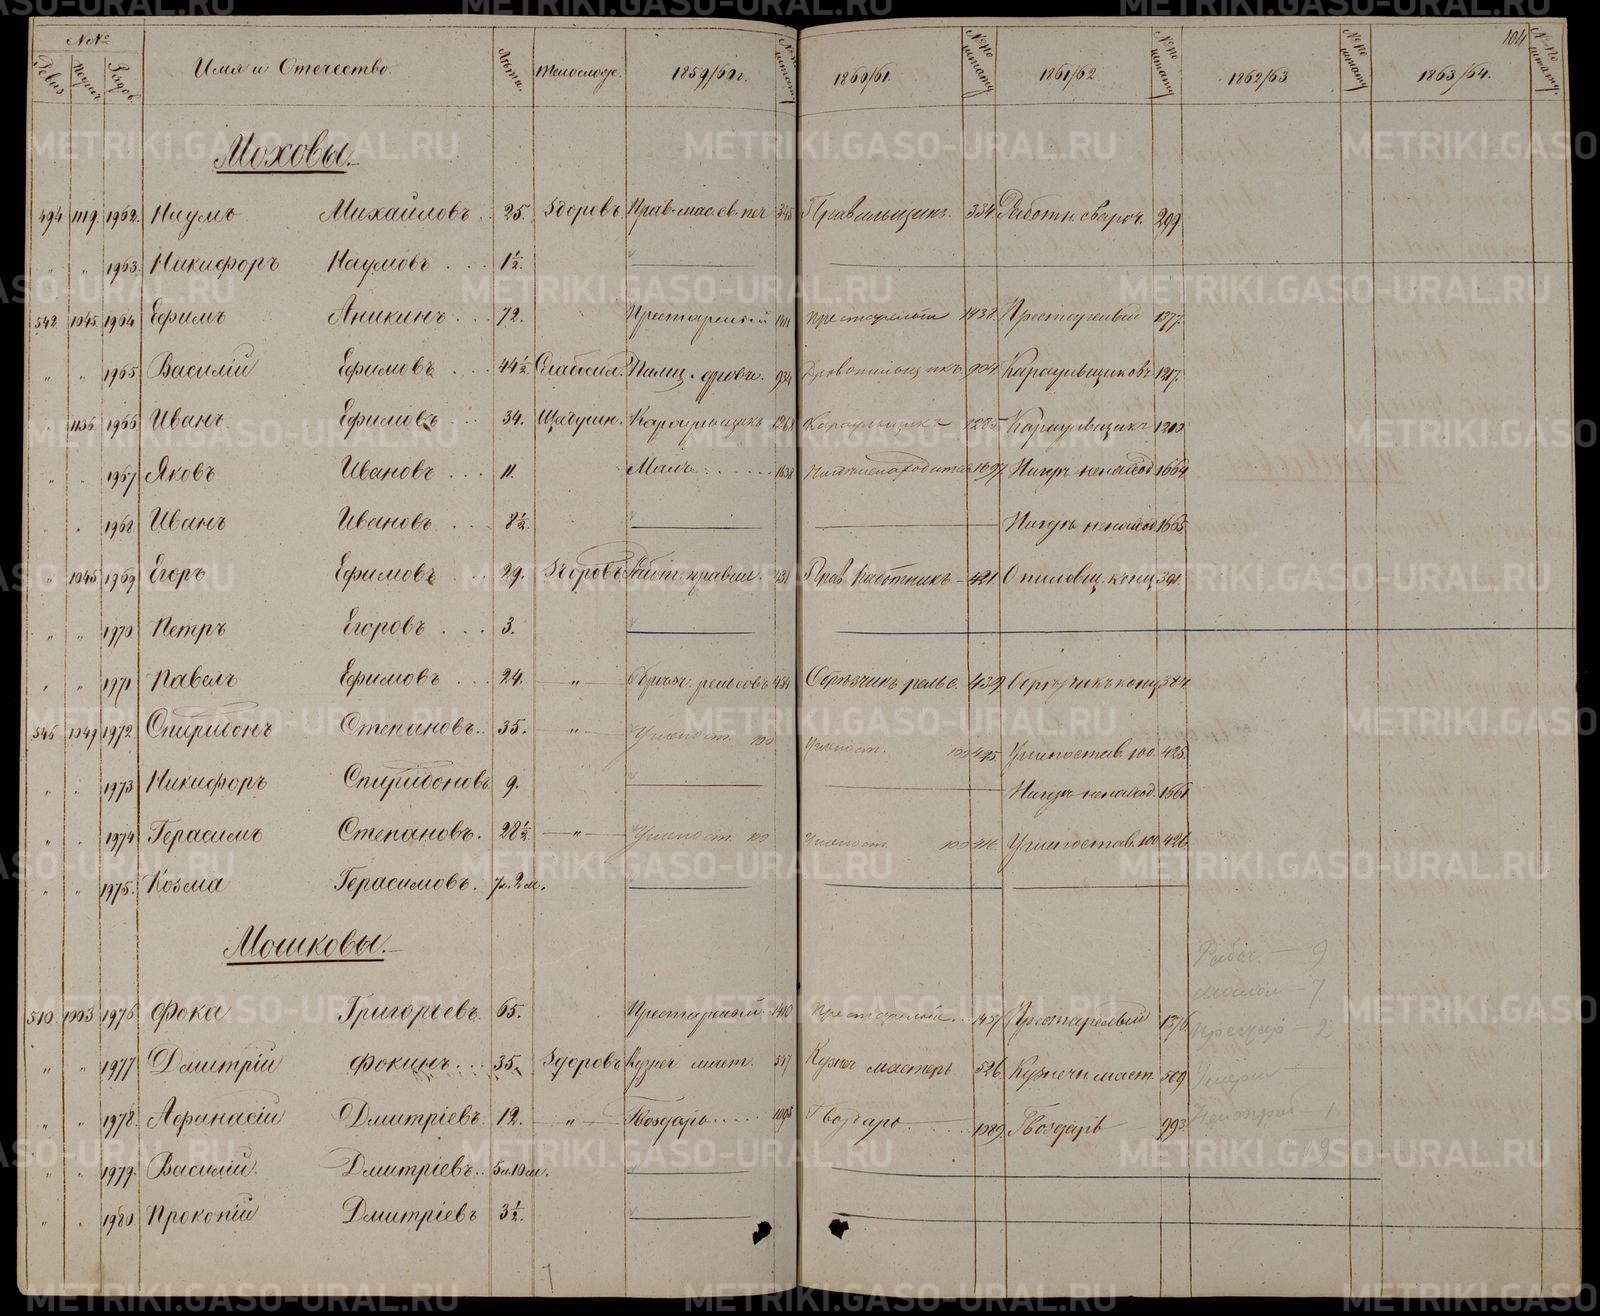 104
№№
Ревиз. Подуш. Рядов. Имя и Отечество. Лѣта. Тѣлослож. 1859/60 г. №№ по штату 1860/61. №№ по штату 1861/62 №№ по штату 1862/63 №№ по штату 1863/64. №№ по штату.
Моховы.
494 1119 1962. Наумъ Михайловъ 25. Здоровъ Прав. мас. св. печ 345 Правильщикъ 334 Работн. свароч. 299
„ „ 1963. Никифоръ Наумовъ 1½.
542 1045 1964 Ефимъ Аникинъ 72. Престарѣлый престарѣлый 1438. Престарѣлый 1377.
„ „ 1965. Василій Ефимовъ 44½ Слабосил. 934 904. Караульщиковъ 1217.
„ 1136 1966 Иванъ Ефимовъ 34. Караульщикъ 1268 Караульщикъ 1225. Караульщикъ 1200
„ „ 1967 Яковъ Ивановъ 11. Малъ 1638 1697 Нигдѣ ненаход 1664
„ „ 1968 Иванъ Ивановъ 8½. Нигдѣ ненаход 1665
„ 1045 1969 Егоръ Ефимовъ 29. Здоровъ Работ. правил. 431 Прав. работникъ 421 Опиловщ. конц 391.
„ „ 1970 Петръ Егоровъ 3.
„ „ 1971 Павелъ Ефимовъ 24. „ Обрѣзч. рельсовъ 454 Обрѣзчикъ рельс. 439. Обрѣзчикъ конц 384.
545 1049 1972 Спиридонъ Степановъ 35. „ Углепост. 100 Углепост. 100 425 Углепостав. 100. 425.
„ „ 1973 Никифоръ Спиридоновъ 9. Нигдѣ ненаход. 1666
„ „ 1974 Герасимъ Степановъ. 28½ „ Углепост. 100 Углепост. 100 416 Углепостав. 100 426
„ „ 1975. Козма Герасимовъ. 7 н. 2 м.
Мошковы.
Рабоч. — 9
510. 1003 1976 Фока Григорьевъ 65. Престарѣлый 1410 Престарѣлый 1437 Престарѣлый 1376
„ „ 1977 Дмитрій Фокинъ 35. Здоровъ Кузнеч. маст. 547 Кузнеч мастеръ 526. Кузнечн. маст. 509
„ „ 1978. Афанасій Дмитріевъ 12. „ Гвоздарь 1095 Гвоздарь 1089 Гвоздарь 993
„ „ 1979. Василій Дмитріевъ 5 л. 10 м.
„ „ 1980 Прокопій Дмитріевъ 3½.
METRIKI.GASO-URAL.RU